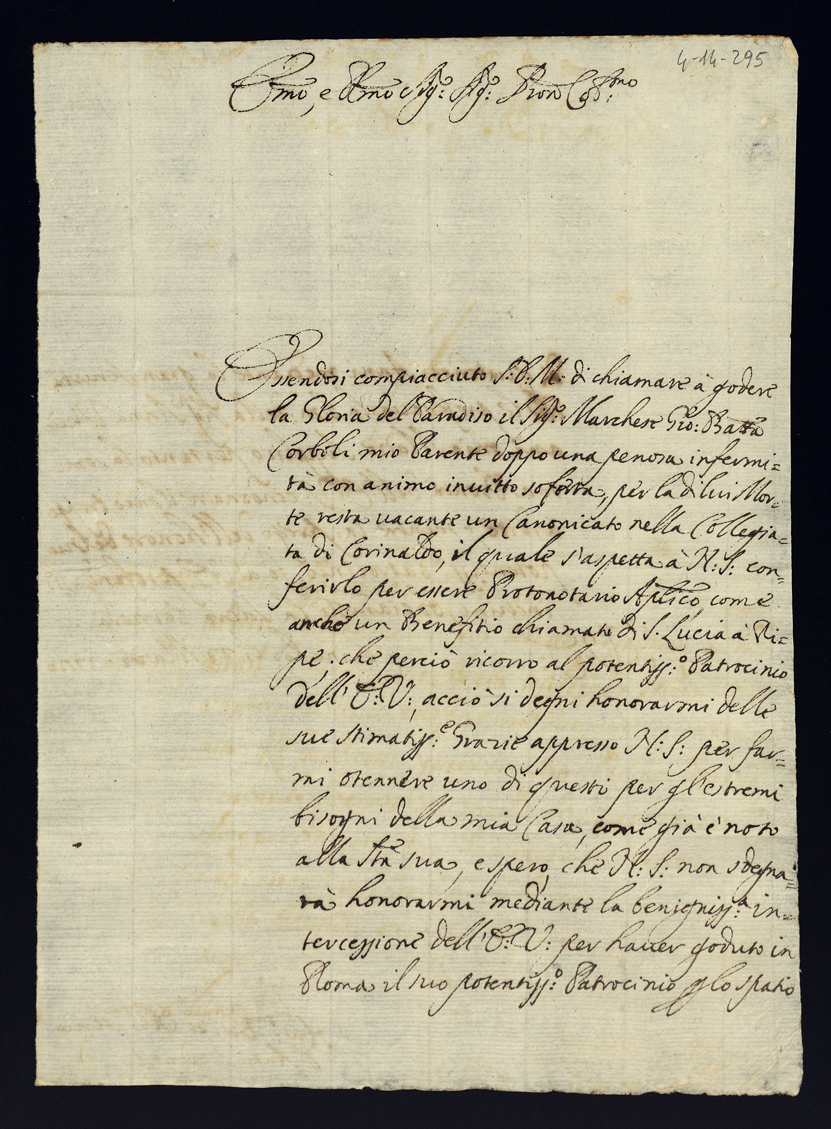 4-14-295
Emo, e Rmo Sig.e Sig.e Pron Col.mo
Essendosi compiacciuto S: D: M: di chiamare à godere
la Gloria del Paradiso il Sig.e Marchese Gio: Batta
Corboli mio Parente doppo una penosa infermi=
tà con animo invitto soferta, per la di lui Mor=
te resta vacante un Canonicato nella Collegia=
ta di Corinaldo, il quale s'aspetta à N: S: con=
ferirlo per essere Protonotario Aplico, come
anche un Benefitio chiamato di S. Lucia à Ri=
pe; che perciò ricorro al potentiss:o Patrocinio
dell' E: V:, acciò si degni honorarmi delle
sue stimatiss:e Grazie appresso N: S: per far=
mi otennere uno di questi per gl'estremi
bisogni della mia Casa, come già è noto
alla Sta sua, e spero, che N: S: non sdegna=
rà honorarmi mediante la benigniss:a in=
tercessione dell' E: V: per haver goduto in
Roma il suo potentiss:o Patrocinio p lo spatio